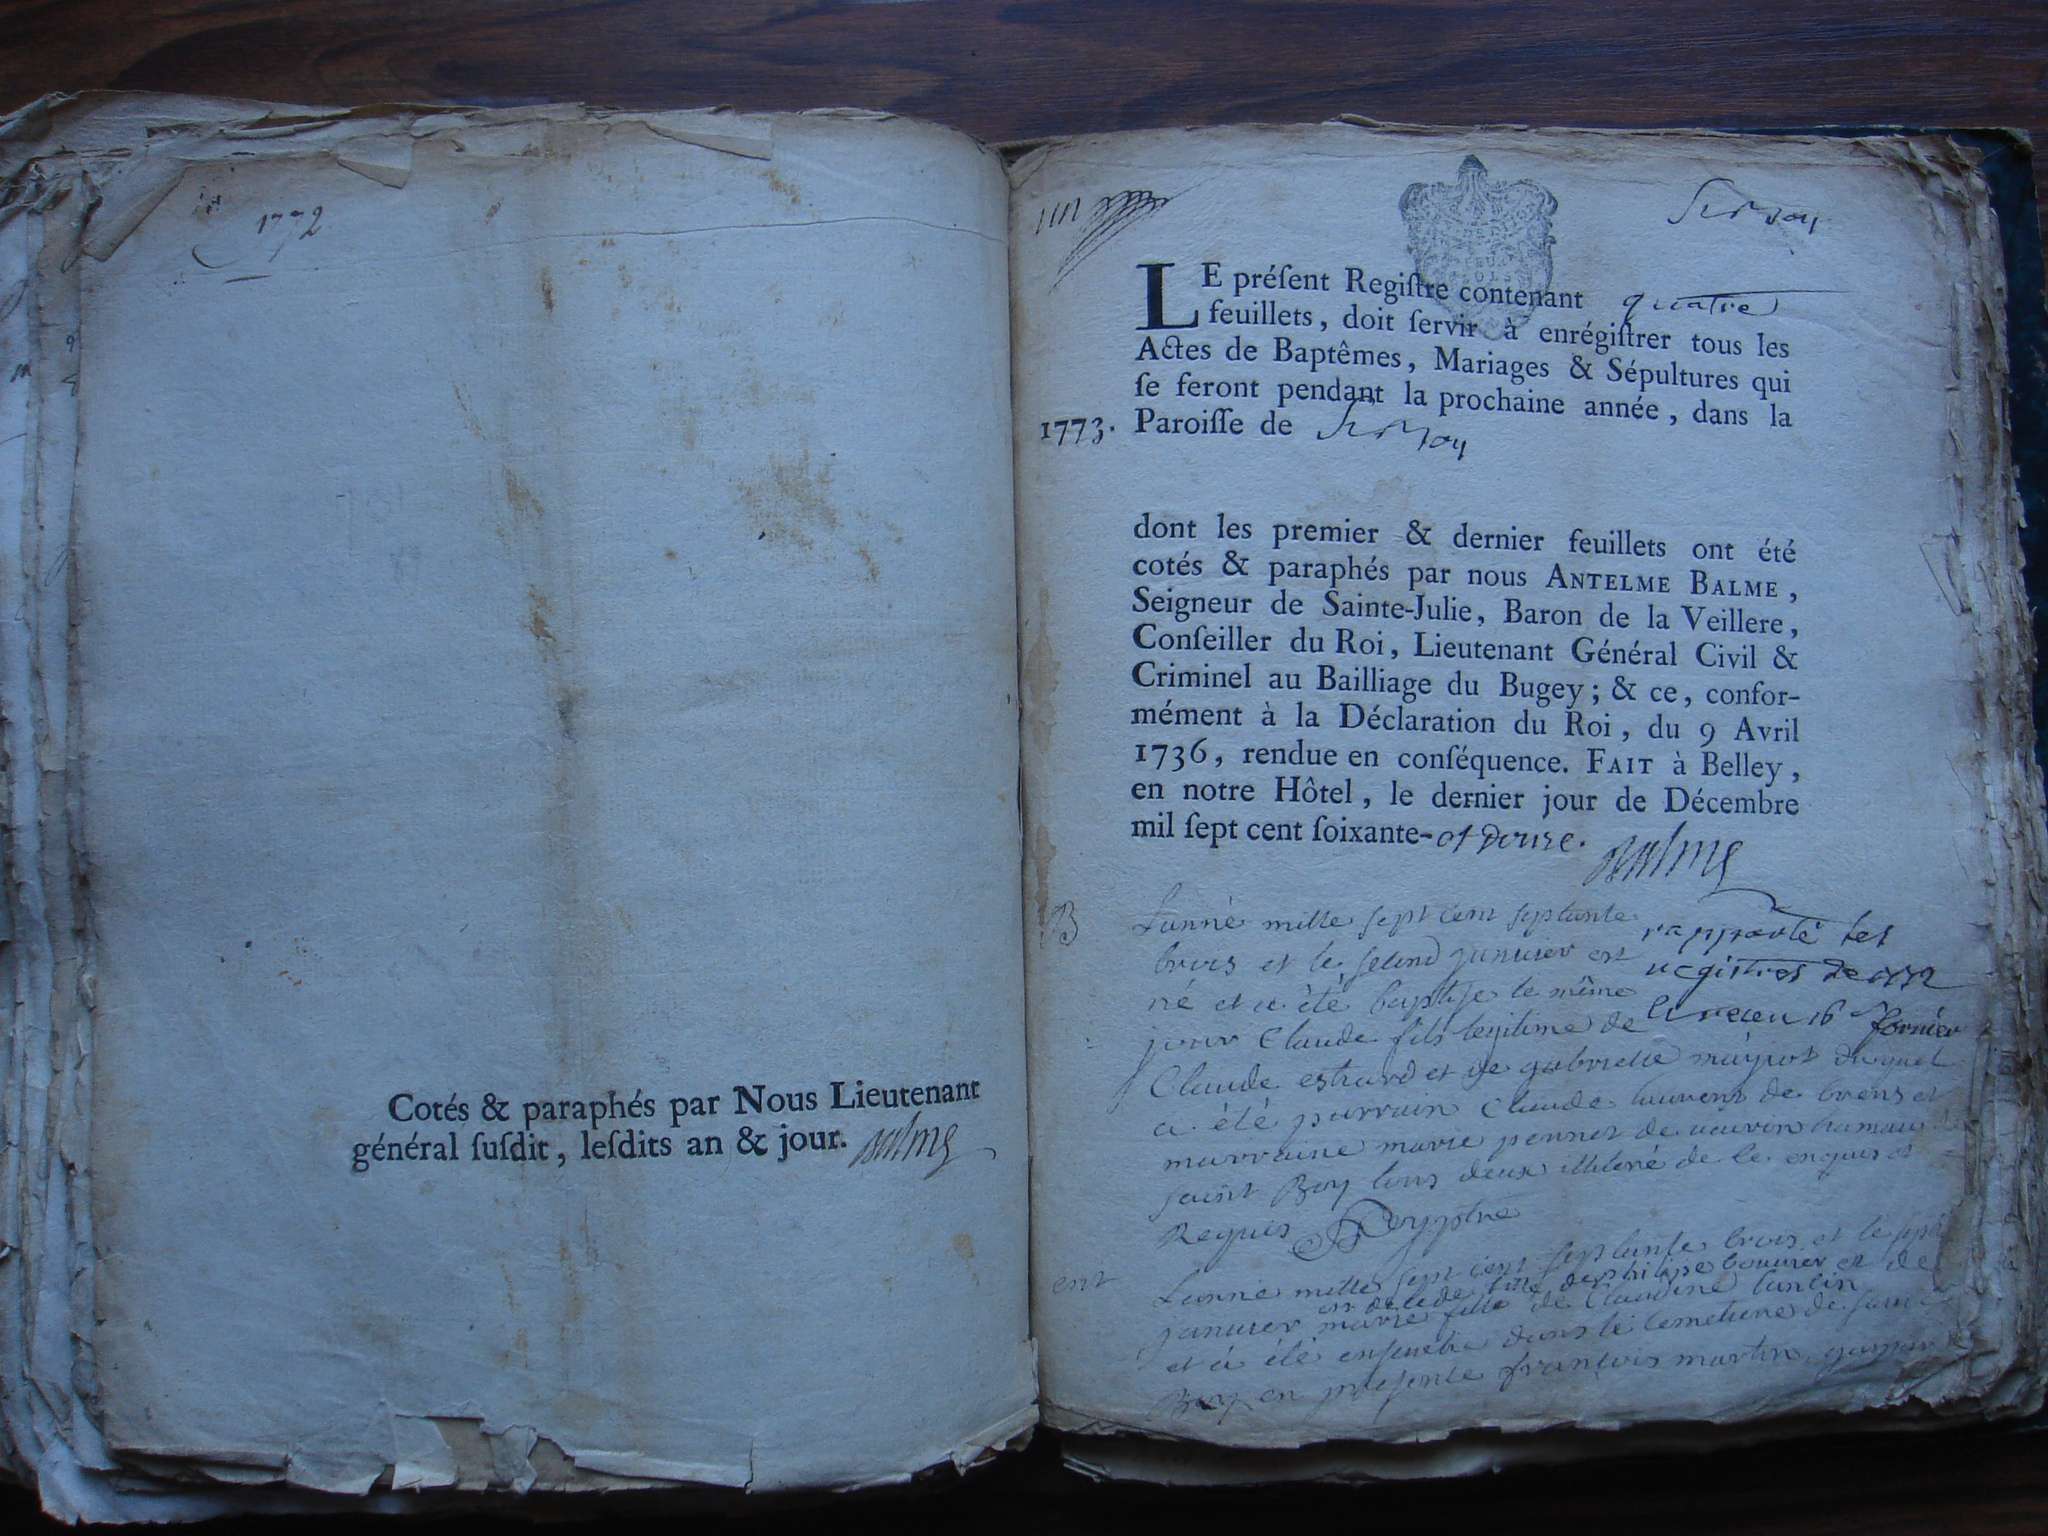 1772
Cotés & paraphés par Nous Lieutenant
général ſuſdit, leſdits an & jour. Balme
un
LE préſent Regiſtre contenant quatre
feuillets, doit ſervir à enrégiſtrer tous les
Actes de Baptêmes, Mariages & Sépultures qui
ſe feront pendant la prochaine année, dans la
1773. Paroiſſe de
dont les premier & dernier feuillets ont été
cotés & paraphés par nous ANTELME BALME,
Seigneur de Sainte-Julie, Baron de la Veillere,
Conſeiller du Roi, Lieutenant Général Civil &
Criminel au Bailliage du Bugey; & ce, confor-
mément à la Déclaration du Roi, du 9 Avril
1736, rendue en conſéquence. FAIT à Belley,
en notre Hôtel, le dernier jour de Décembre
mil ſept cent ſoixante-et douze.
Balme
rapporté les
registres de 1772
16
B
Lanné mille sept cent septante
trois et le second janvier est
né et a été baptise le même
jour Claude fils legitime de
Claude et de gabrielle duquel
a été parrain Claude laurent de brens et
marraine marie pennet de
saint Boy tous deux illiteré de ce enquis et
Requis
ent
Lanné mille sept cent septante trois et le
janvier marie fille de Claudine
et a été ensevelie dans le cemetiere de saint
Boy en presence françois martin